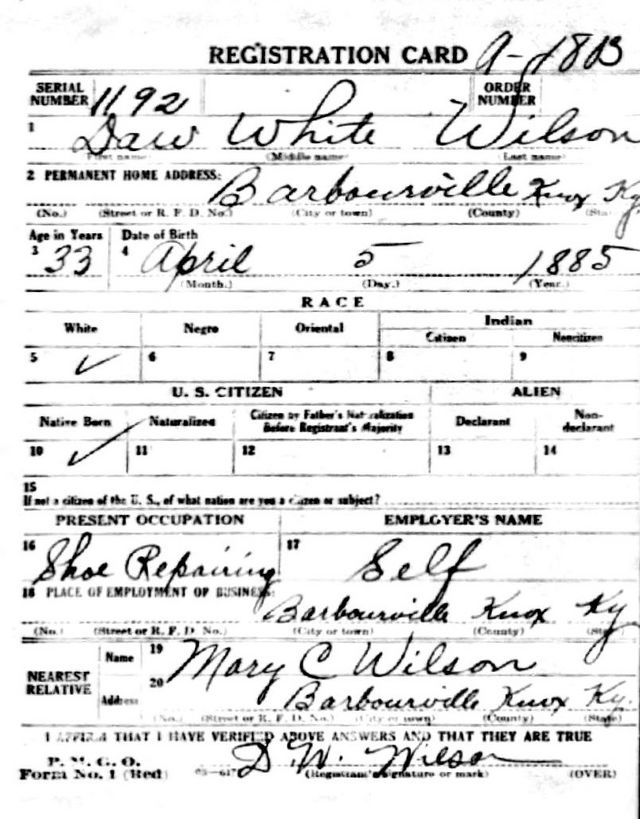 REGISTRATION CARD A-1803
SERIAL NUMBER 1192 ORDER NUMBER
1 Daw White Wilson
(First name) (Middle name) (Last name)
2 PERMANENT HOME ADDRESS: Barbourville Knox Ky
(No.) (Street or R. F. D. No.) (City or town) (County) (State)
Age in Years Date of Birth
3 33 4 April 5 1885
(Month.) (Day.) (Year.)
RACE
White Negro Oriental Indian
Citizen Noncitizen
5 ✓ 6 7 8 9
U. S. CITIZEN ALIEN
Native Born Naturalized Citizen by Father's Naturalization Before Registrant's Majority Declarant Non-declarant
10 ✓ 11 12 13 14
15
If not a citizen of the U. S., of what nation are you a citizen or subject?
PRESENT OCCUPATION EMPLOYER'S NAME
16 Shoe Repairing 17 Self
18 PLACE OF EMPLOYMENT OF BUSINESS:
Barbourville Knox Ky
(No.) (Street or R. F. D. No.) (City or town) (County) (State)
NEAREST RELATIVE Name 19 Mary C Wilson
Address 20 Barbourville Knox Ky.
(No.) (Street or R. F. D. No.) (City or town) (County) (State)
I AFFIRM THAT I HAVE VERIFIED ABOVE ANSWERS AND THAT THEY ARE TRUE
P. M. G. O.
Form No. 1 (Red) D. W. Wilson
(Registrant's signature or mark) (OVER)